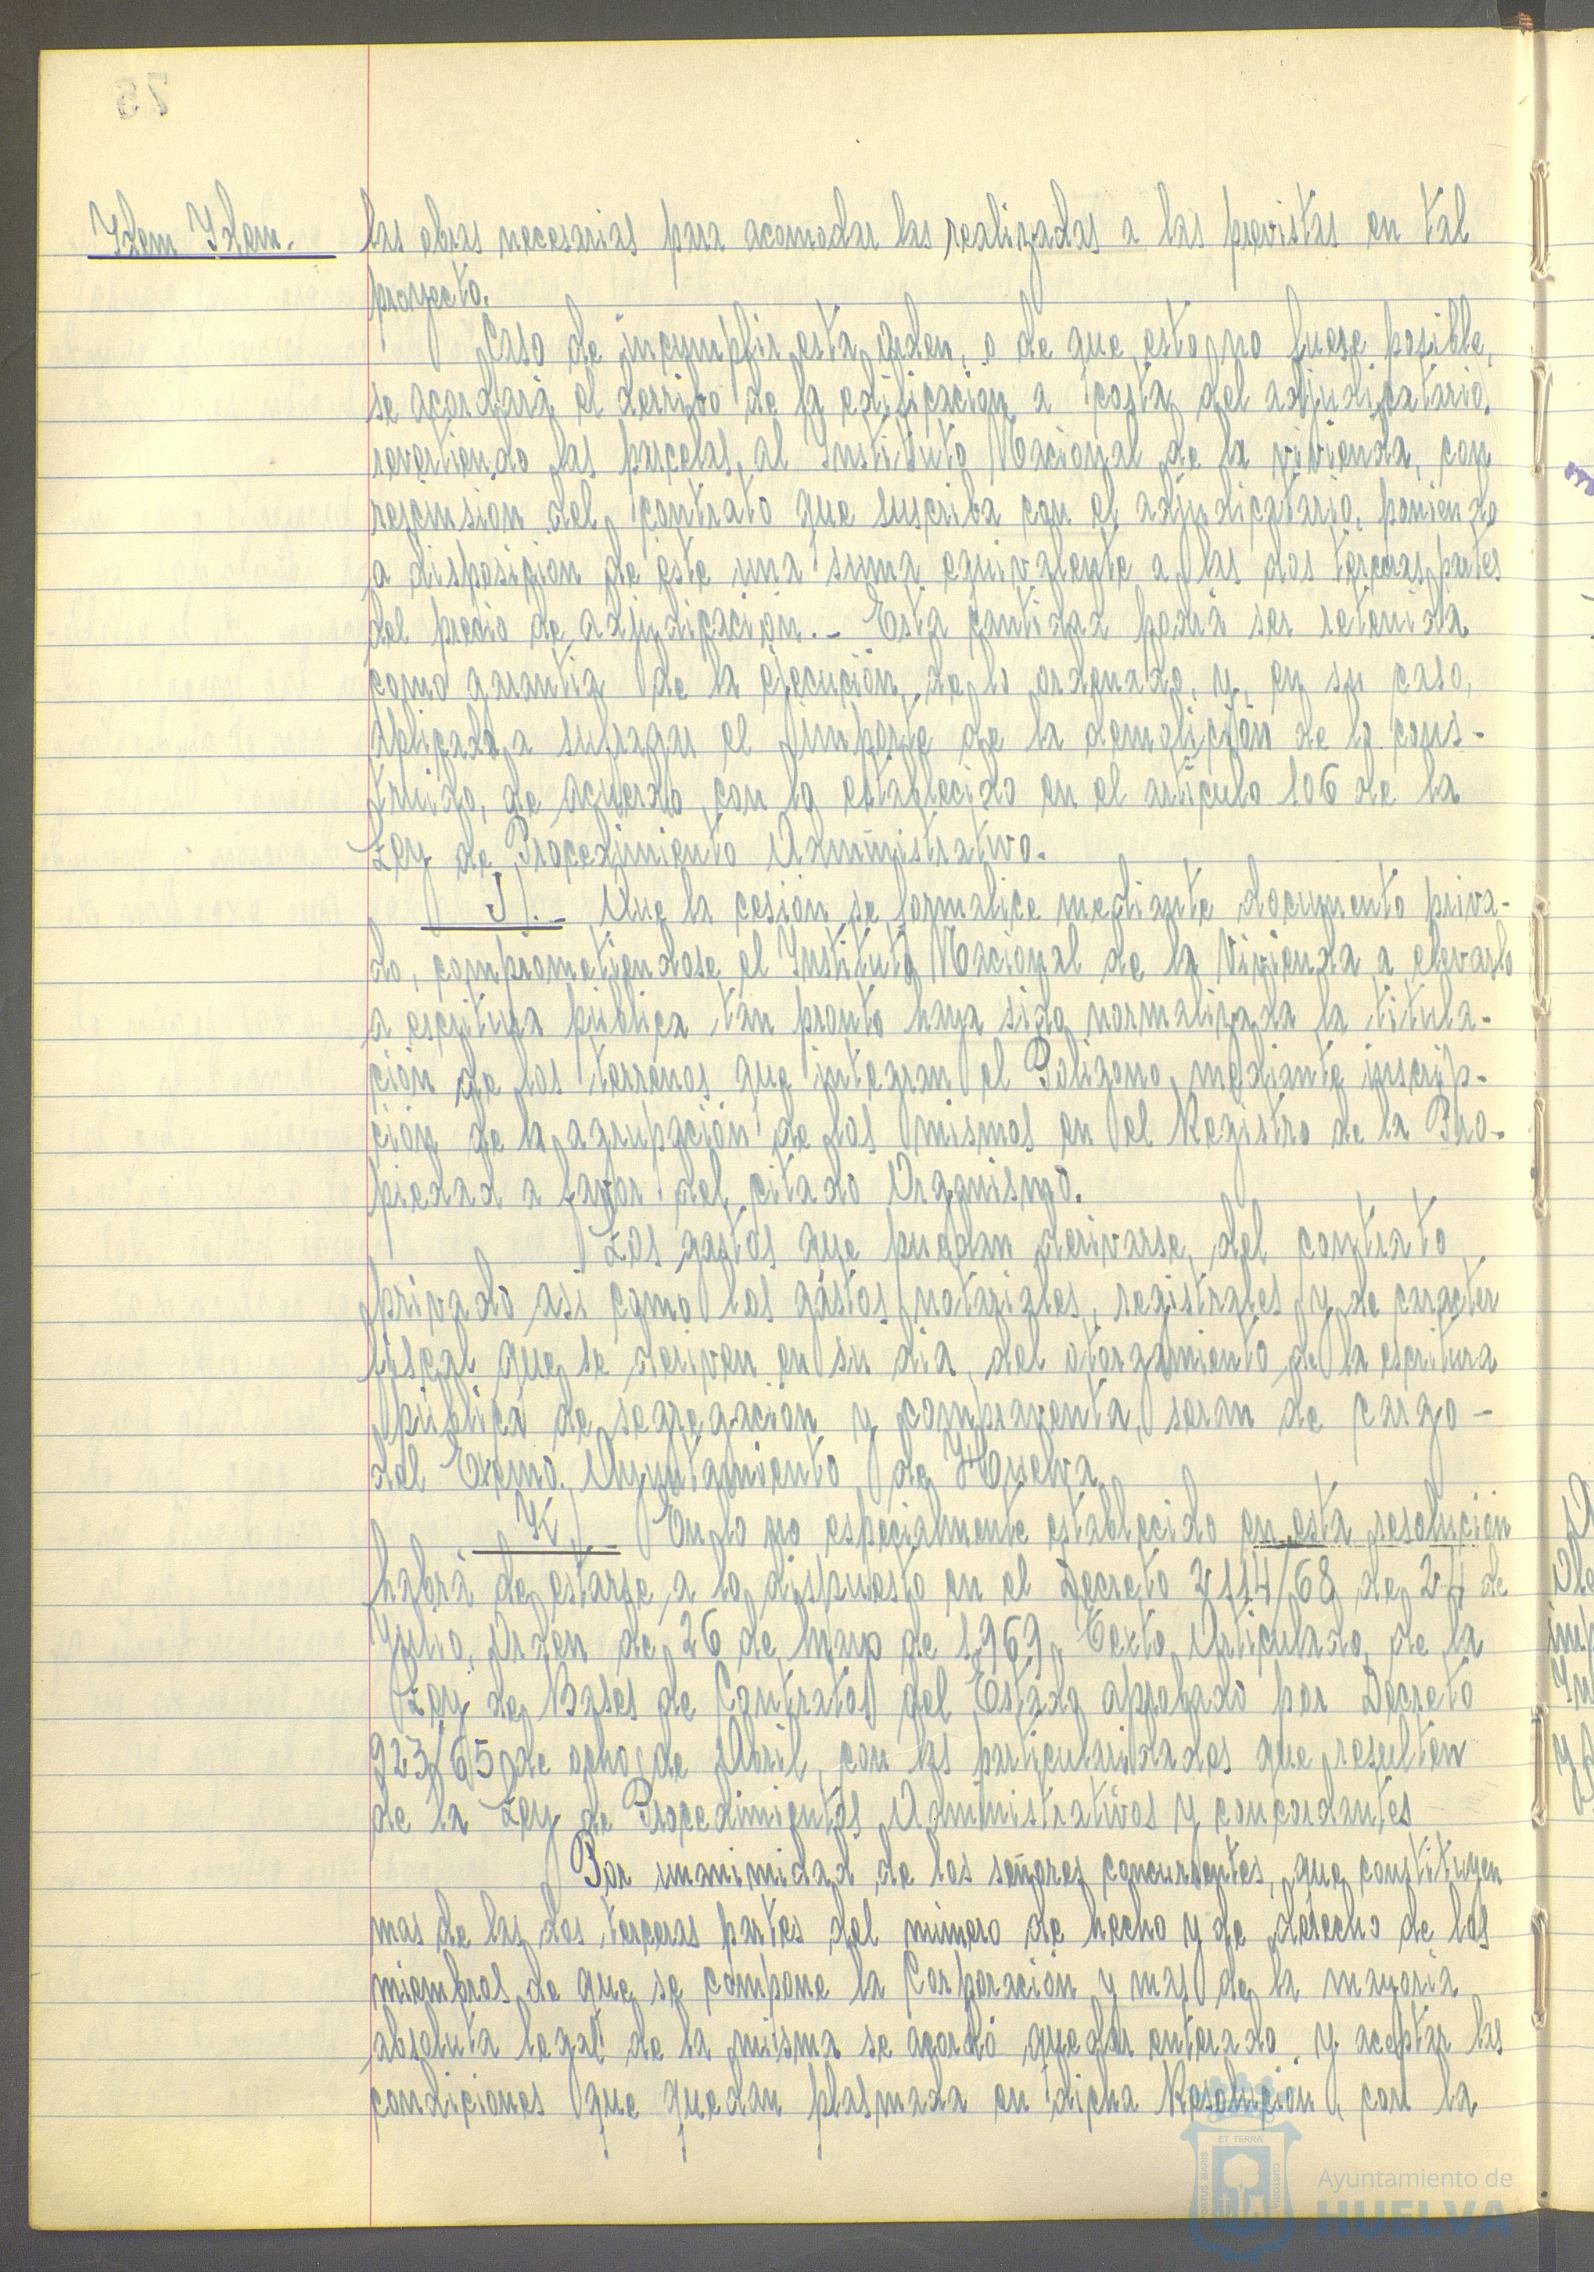 Idem Idem.
las obras necesarias para acomodar las realizadas a las previstas en tal
proyecto.
Caso de incumplir esta orden, o de que esto no fuese posible,
se acordará el derribo de la edificación a costa del adjudicatario,
revertiendo las parcelas, al Instituto Nacional de la vivienda, con
rescinsión del contrato que suscriba con el adjudicatario, poniendo
a disposición de éste una suma equivalente a las dos terceras partes
del precio de adjudicación.- Esta cantidad podrá ser retenida
como garantia de la ejecución, de lo ordenado, y, en su caso,
aplicada a sufragar el importe de la demolición de lo cons-
truido, de acuerdo con lo establecido en el artículo 106 de la
Ley de Procedimiento Administrativo.
J).- Que la cesión se formalice mediante documento priva-
do, comprometiendose el Instituto Nacional de la Vivienda a elevarlo
a escritura pública tan pronto haya sido normalizada la titula-
ción de los terrenos que integran el Polígono, mediante inscrip-
ción de la agrupación de los mismos en el Registro de la Pro-
piedad a favor del citado Organismo.
Los gastos que puedan derivarse, del contrato
privado asi como los gastos notariales, registrales y de caracter
fiscal que se deriven en su dia, del otorgamiento de la escritura
pública de segregación y compraventa, seran de cargo -
del Excmo. Ayuntamiento de Huelva.
K).- En lo no especialmente establecido en esta resolución
habrá de estarse a lo dispuesto en el Decreto 2114/68 de 24 de
Julio, Orden de 26 de Mayo de 1.969, Texto Articulado, de la
Ley de Bases de Contratos del Estado aprobado por Decreto
923/65 de ocho de Abril, con las particularidades que resulten
de la Ley de Procedimientos Administrativos y concordantes
Por unanimidad de los señores concurrentes, que constituyen
mas de las dos terceras partes del número de hecho y de derecho de los
miembros de que se compone la Corporación y mas de la mayoria
absoluta legal de la misma se acordó quedar enterado y aceptar las
condiciones que quedan plasmada en dicha Resolución, con la
Ayuntamiento de
HUELVA